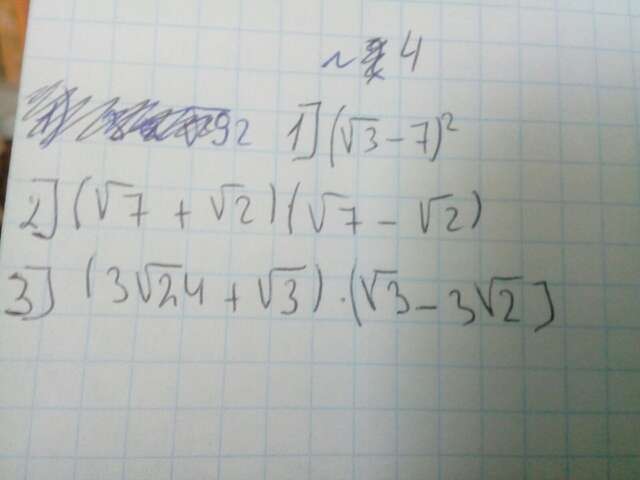 ~ 4
√92 1](√3-7)²
2](√7+√2)(√7-√2)
3](3√24+√3)·(√3-3√2]